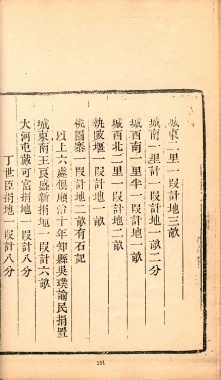 城東二里一段計地三畝
城南一里計一段計地一畝二分
城西南一里半一段計地一畝
城西北二里一段計地二畝
執陂堰一段計地一畝
桃園寨一段計地二畝有石記
以上六處俱順治十年知縣吳璞諭民捐置
城東南王良盛新捐地一段計六畝
大河屯戴可富捐地一段計八分
丁世臣捐地一段計八分
151